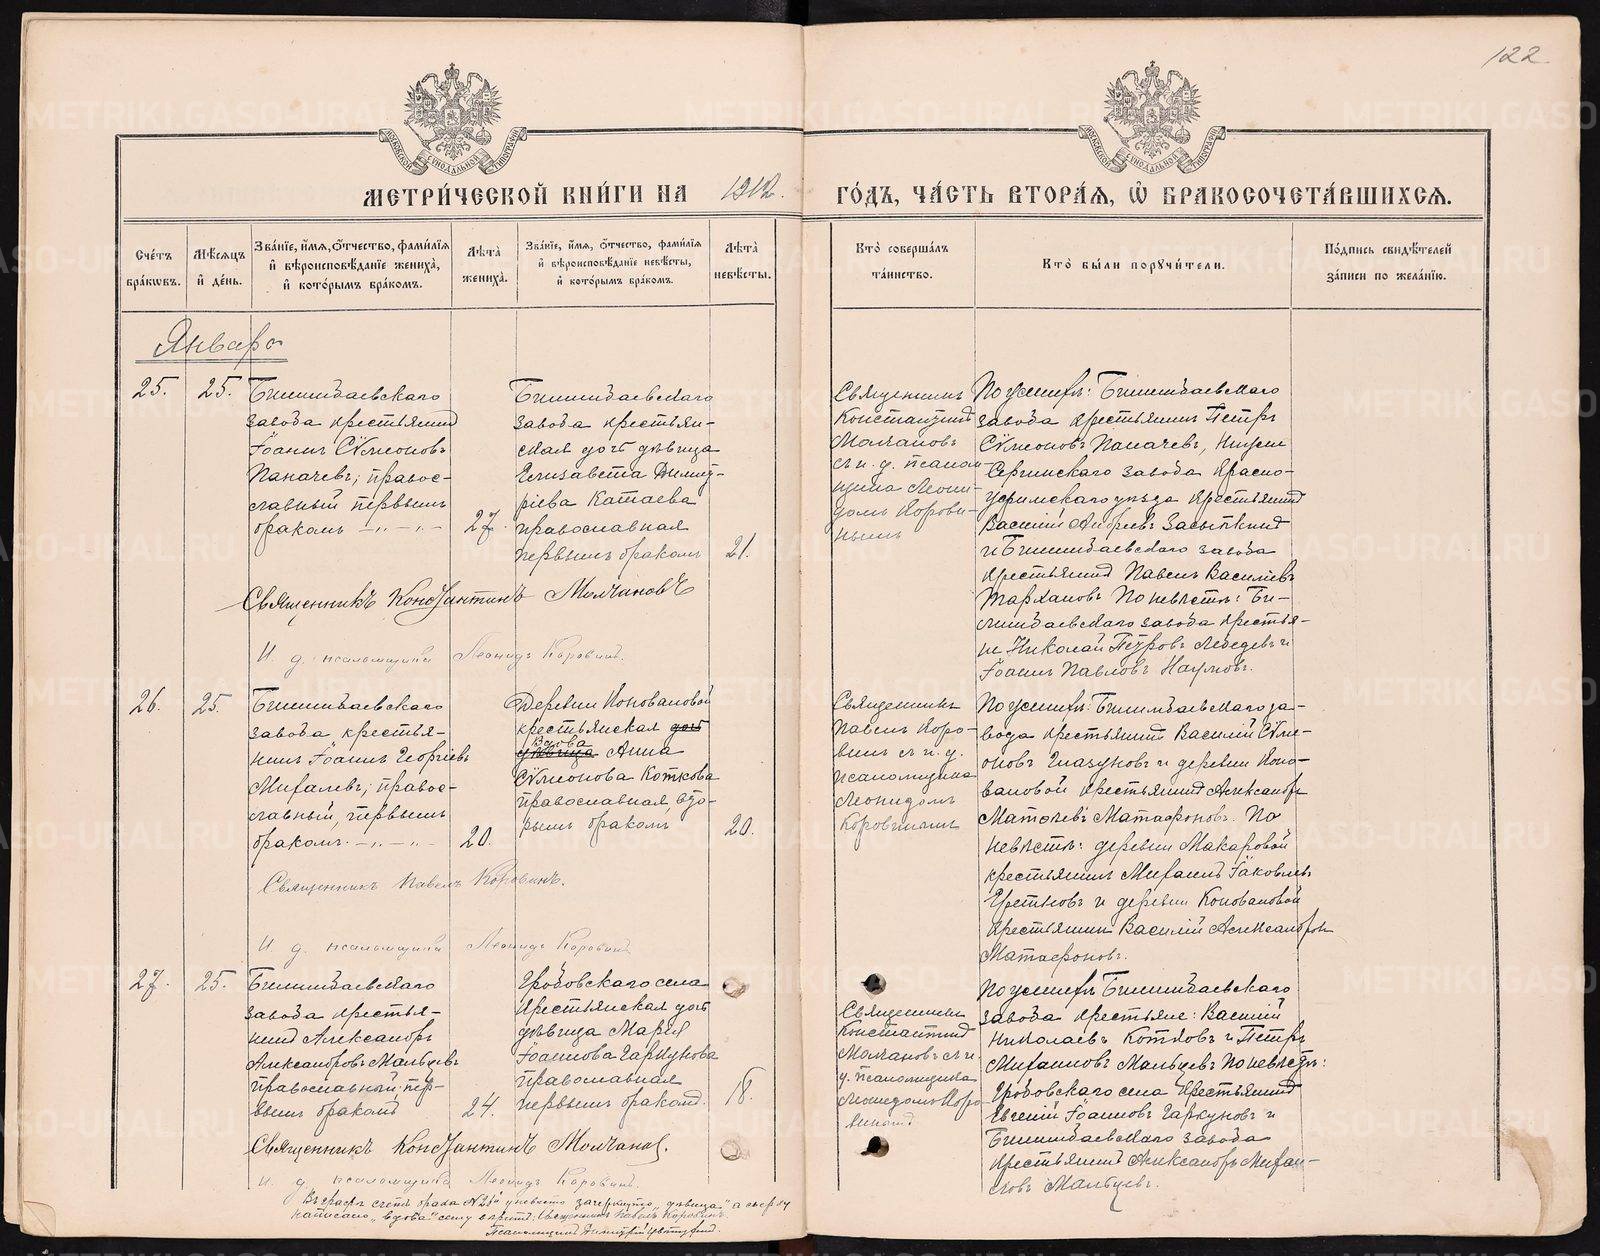 122
МЕТРИ́ЧЕСКОЙ КНИ́ГИ НА 1912.
ГО́ДЪ, ЧА́СТЬ ВТОРА́Ѧ, Ѽ БРАКОСОЧЕТА́ВШИХСѦ.
Сче́тъ бра́кѡвъ.
Мѣ́сѧцъ и҆ де́нь.
Зва́нїе, и҆́мѧ, ѻ҆́тчество, фами́лїѧ
и҆ вѣроисповѣ́данїе жениха̀,
и҆ кото́рымъ бра́комъ.
Лѣ́та̀ жениха̀.
Зва́нїе, и҆́мѧ, ѻ҆́тчество, фами́лїѧ
и҆ вѣроисповѣ́данїе невѣ́сты,
и҆ кото́рымъ бра́комъ.
Лѣ́та̀ невѣ́сты.
Кто̀ соверша́лъ
та́инство.
Кто̀ бы́ли порꙋчи́тели.
По́дпись свидѣ́телей
за́писи по жела́нїю.
Январь
25.
25.
Билимбаевскаго
завода крестьянинъ
Іоаннъ Сѵмеоновъ
Паначевъ; правос-
лавный первымъ
бракомъ
27.
Билимбаевскаго
завода крестьян-
ская дочь дѣвица
Елизавета Димит-
ріева Катаева
православная
первымъ бракомъ
21.
Священникъ
Константинъ
Молчановъ
съ и. д. псалом-
щика Леони-
домъ Корови-
нымъ
По женихѣ: Билимбаевскаго
завода крестьянинъ Петръ
Сѵмеоновъ Паначевъ, Нижне
Сергинскаго завода Красно-
уфимскаго уѣзда крестьянинъ
Василій Андреевъ Засыпкинъ
и Билимбаевскаго завода
крестьянинъ Павелъ Васильевъ
Тархановъ По невѣстѣ: Би-
лимбаевскаго завода крестья-
не Николай Петровъ Лебедевъ и
Іоаннъ Павловъ Наумовъ.
Священникъ Константинъ Молчановъ
И. д. псаломщика Леонидъ Коровинъ.
26.
25.
Билимбаевскаго
завода, крестья-
нинъ Іоаннъ Георгіевъ
Михалевъ; правос-
лавный, первымъ
бракомъ.
20.
Деревни Коноваловой
крестьянская дочь
вдова
дѣвица Анна
Сѵмеонова Коткова
православная, вто-
рымъ бракомъ
20.
Священникъ
Павелъ Коро-
винъ съ и. д.
псаломщика
Леонидомъ
Коровинымъ
По женихѣ: Билимбаевскаго за-
вода крестьянинъ Василій Сѵме-
оновъ Глазуновъ и деревни Коно-
валовой крестьянинъ Александръ
Матѳеевъ Матафоновъ. По
невѣстѣ: деревни Макаровой
крестьянинъ Михаилъ Іаковлевъ
и деревни Коноваловой
крестьянин Василій Александровъ
Матафоновъ.
Священникъ Павелъ Коровинъ.
И. д. псаломщика Леонидъ Коровинъ
27.
25.
Билимбаевскаго
завода крестья-
нинъ Александръ
Александровъ Мальцевъ
православный, пер-
вымъ бракомъ
24.
Гробовскаго села
крестьянская дочь
дѣвица Марія
Іоаннова Гаркунова
православная
первымъ бракомъ.
18.
Священникъ
Константинъ
Молчановъ съ и.
д. псаломщика
Леонидомъ Коро-
винымъ
По женихѣ Билимбаевскаго
завода крестьяне: Василій
Николаевъ Котковъ и Петръ
Михаиловъ Мальцевъ По невѣстѣ:
Гробовскаго села крестьянинъ
Евгеній Іоанновъ Гаркуновъ и
Билимбаевскаго завода
крестьянинъ Александръ Михаи-
ловъ Мальцевъ.
Священникъ Константинъ Молчановъ.
И. д. псаломщика Леонидъ Коровинъ.
Въ графѣ счетъ брака №26й у невѣсты зачеркнуто „дѣвица" а сверху
написано „вдова" сему вѣрить. Священникъ Павелъ Коровинъ.
Псаломщикъ Димитрій